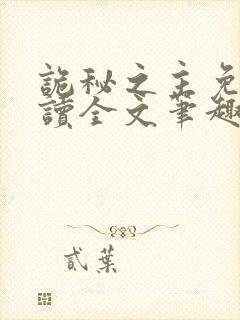 詭秘之主免
讀全文筆趣
貳葉